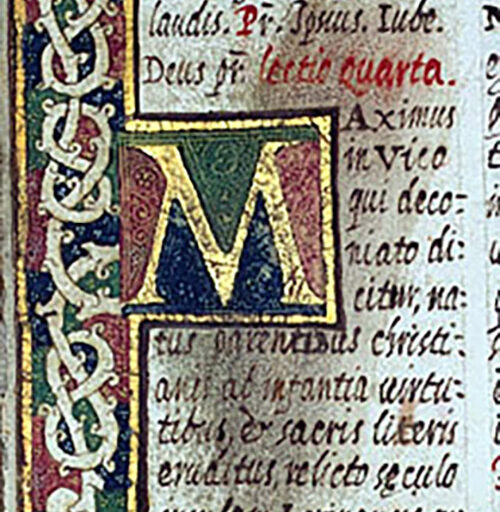 laudis. Pr. Ipsius. Iube.
Deus pr̃. lectio quarta.
MAximus
in Vico
qui deco=
niato di=
citur, na=
tus parentibus christi=
anis ab infantia uirtu=
tibus, & sacris literis
eruditus, relicto sęculo